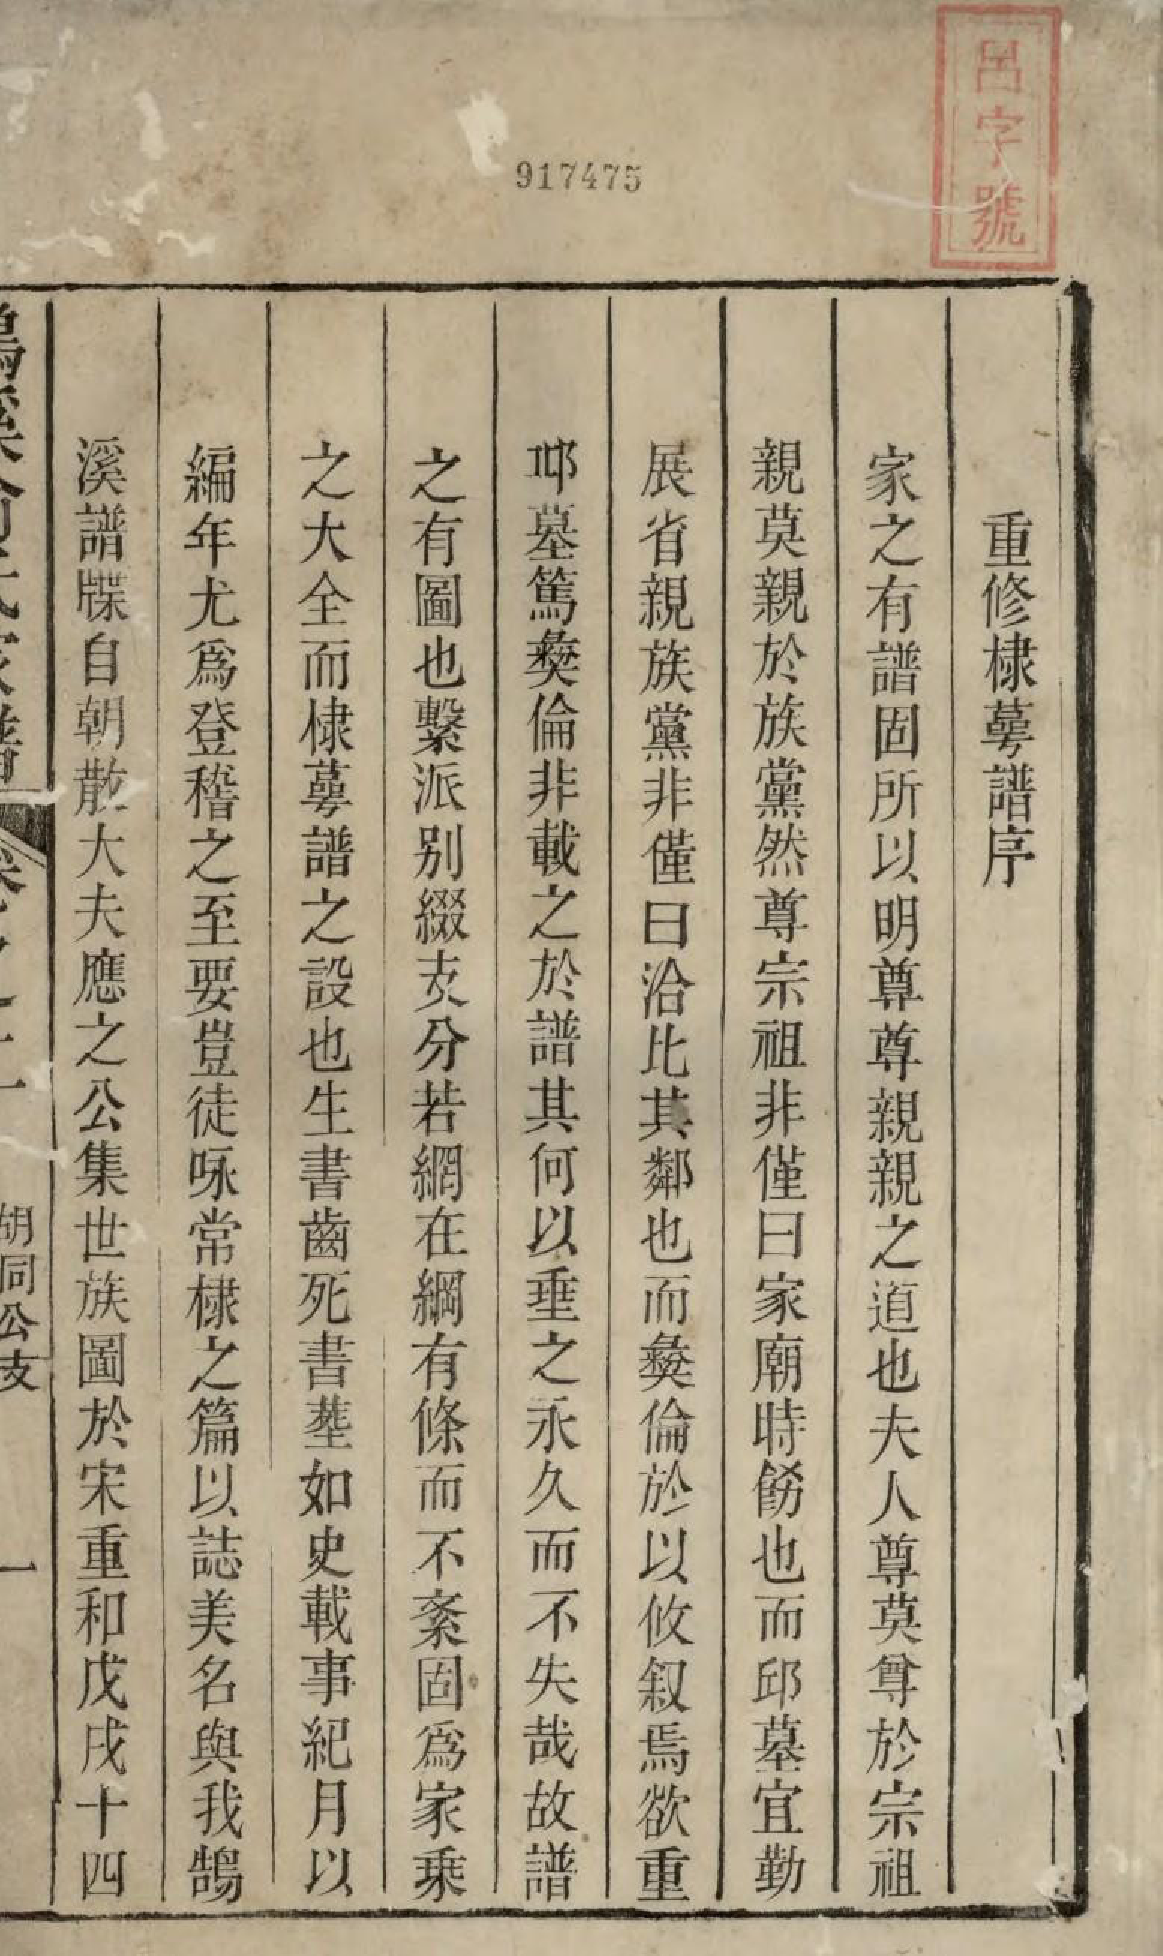 呂字號
917475
重修棣萼譜序
家之有譜固所以明尊尊親親之道也夫人尊莫尊於宗祖
親莫親於族黨然尊宗祖非僅曰家廟時餝也而邱墓宜勤
展省親族黨非僅曰洽比其鄰也而彝倫於以攸叙焉欲重
邱墓篤彝倫非載之於譜其何以垂之永久而不失哉故譜
之有圖也繫派別綴支分若網在綱有條而不紊固爲家乗
之大全而棣萼譜之設也生書齒死書塟如史載事紀月以
編年尤爲登稽之至要豈徒咏常棣之篇以誌美名與我鵠
溪譜牒自朝散大夫應之公集世族圖於宋重和戊戌十四
胡同公支
一